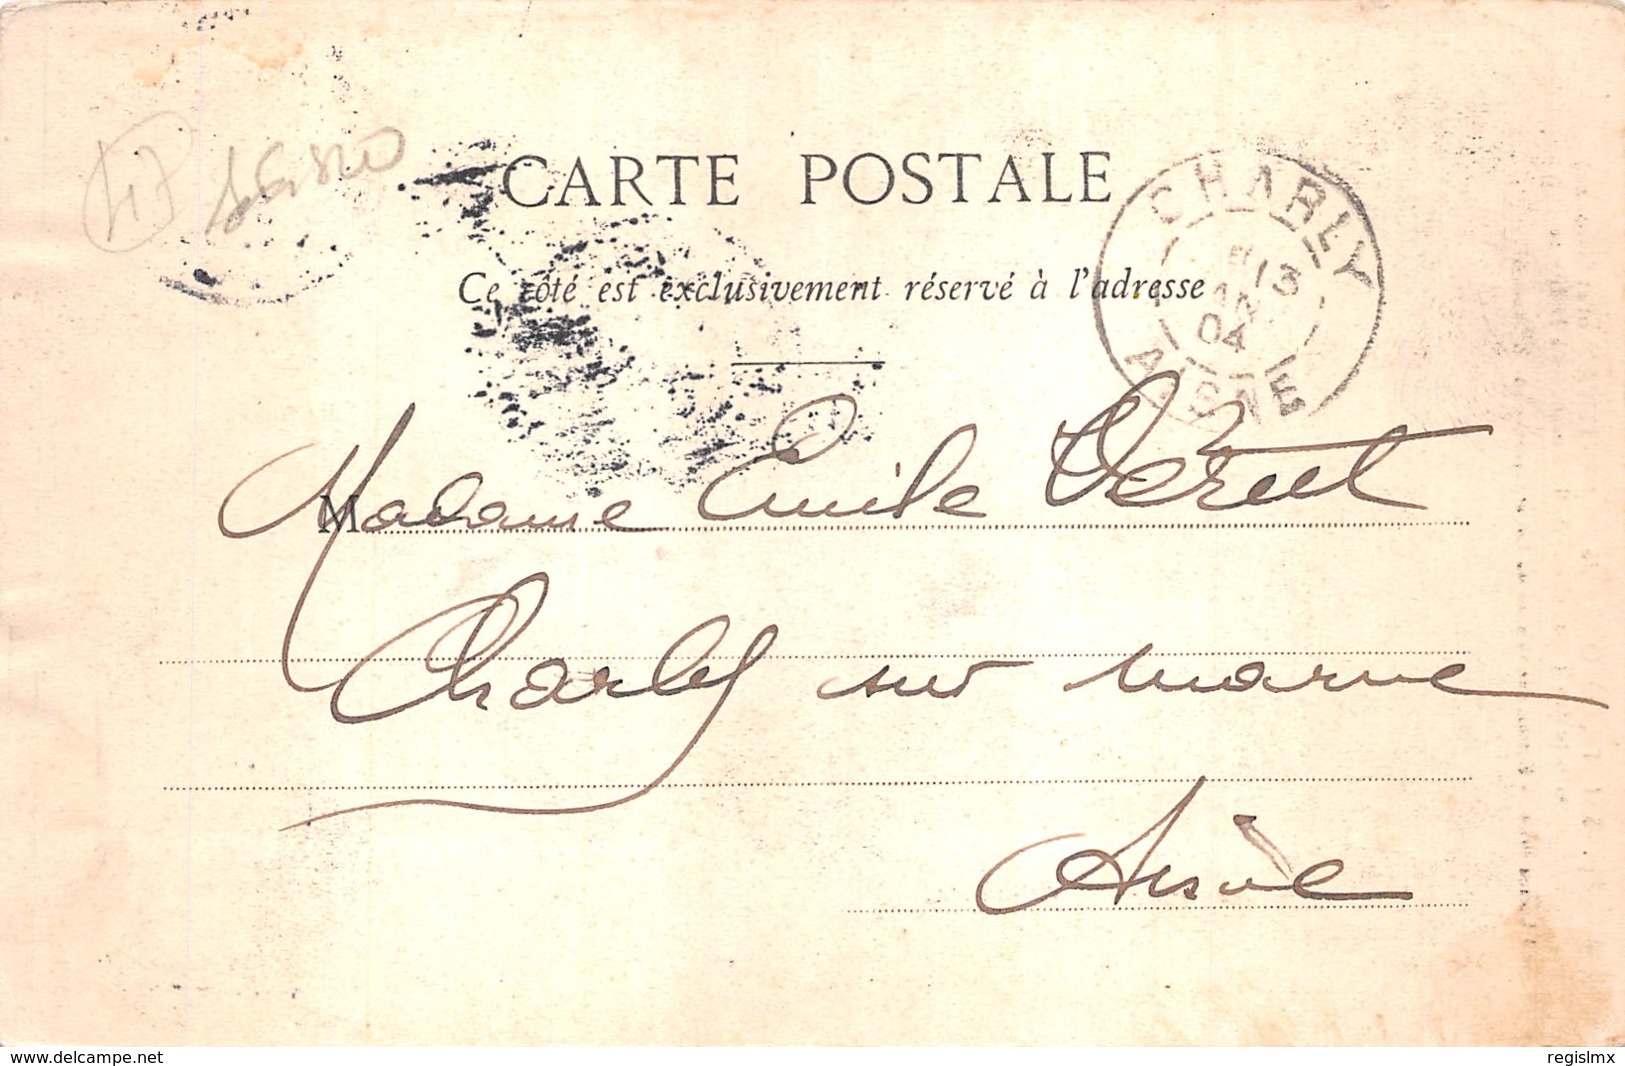 CARTE POSTALE
Ce côté est exclusivement réservé à l'adresse
CHARLY
04
AISNE
Madame Emile
Charly sur marne
Aisne
www.delcampe.net
regislmx